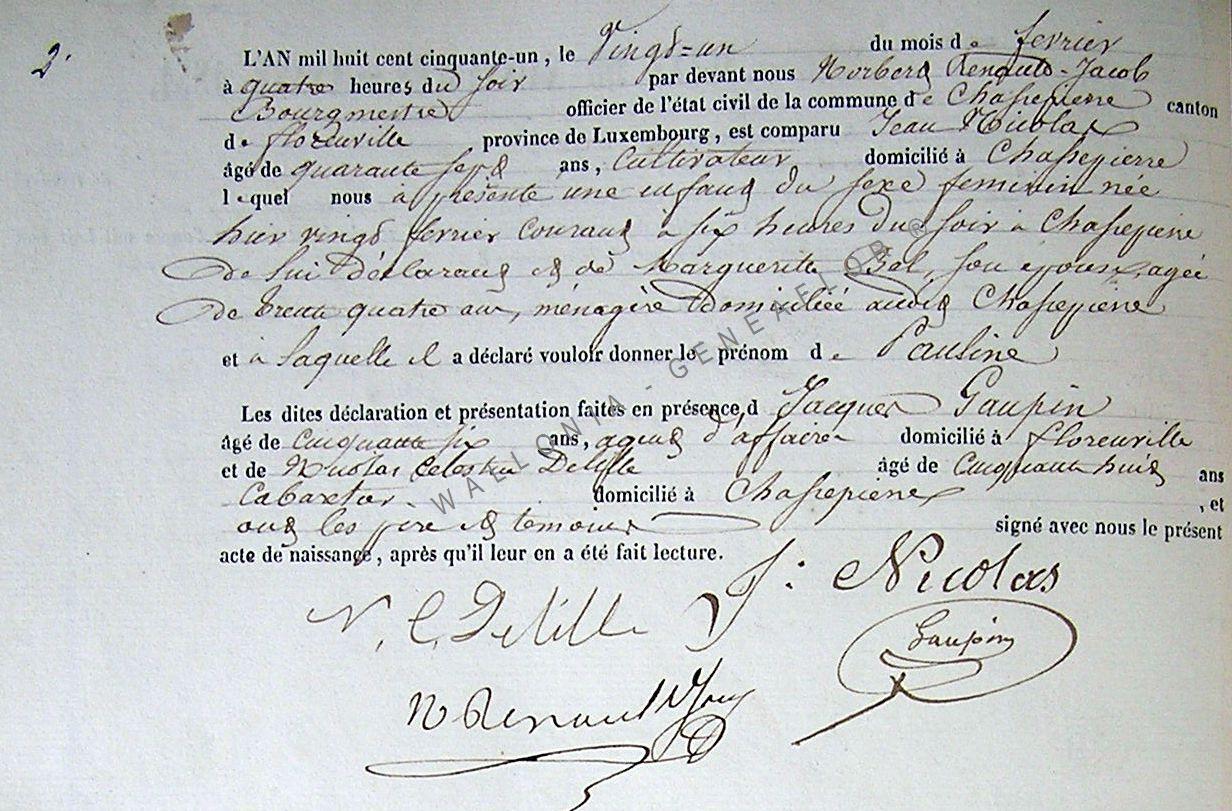 2.
L'AN mil huit cent cinquante-un, le Vingt=un du mois de fevrier
à quatre heures du soir par devant nous Norbert Renauld-Jacob
Bourgmestre officier de l'état civil de la commune de Chassepierre canton
de florenville province de Luxembourg, est comparu Jean Nicolas
âgé de quarante sept ans, Cultivateur domicilié à Chassepierre
lequel nous a présenté une enfant du sexe feminin née
hier vingt fevrier courant à six heures du soir à Chassepierre
de lui déclarant et de Marguerite Bal, son epouse, agée
de trente quatre ans, ménagère domiciliée audit Chassepierre
et à laquelle il a déclaré vouloir donner le prénom de Pauline
Les dites déclaration et présentation faites en présence d Jacques Gaupin
âgé de cinquante six ans, agent d'affaires domicilié à florenville
et de Nicolas Celestin Delille âgé de cinquante huit ans
Cabaretier domicilié à Chassepierre , et
ont les père et temoins signé avec nous le présent
acte de naissance, après qu'il leur en a été fait lecture.
J: Nicolas
N. C. Delille
Gaupin
N Renauld
WALLONIA - GENEAFLOB ©